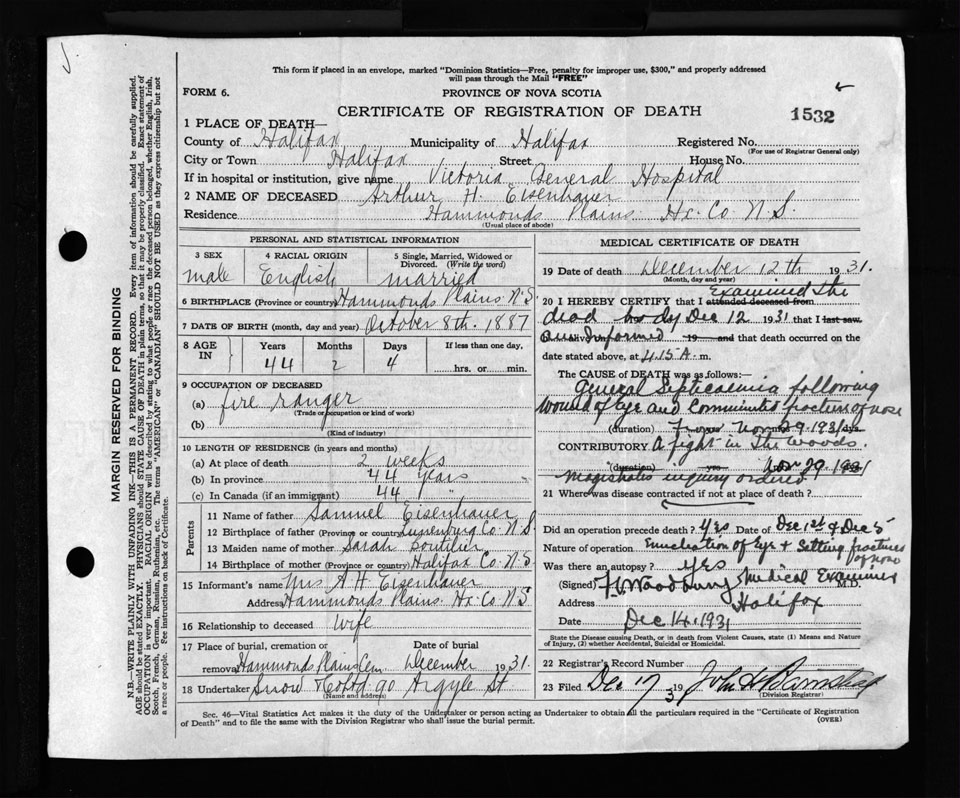 This form if placed in an envelope, marked "Dominion Statistics—Free, penalty for improper use, $300," and properly addressed
will pass through the Mail "FREE"
FORM 6.
PROVINCE OF NOVA SCOTIA
CERTIFICATE OF REGISTRATION OF DEATH
1532
1 PLACE OF DEATH—
County of Halifax Municipality of Halifax Registered No.
(For use of Registrar General only)
City or Town Halifax Street House No.
If in hospital or institution, give name Victoria General Hospital
2 NAME OF DECEASED Arthur H. Eisenhauer
Residence Hammonds Plains. Hx. Co. N.S.
(Usual place of abode)
PERSONAL AND STATISTICAL INFORMATION
3 SEX 4 RACIAL ORIGIN 5 Single, Married, Widowed or
Divorced. (Write the word)
male English married
6 BIRTHPLACE (Province or country) Hammonds Plains N.S.
7 DATE OF BIRTH (month, day and year) October 8th. 1887
8 AGE IN Years Months Days If less than one day,
44 2 4 hrs. or min.
9 OCCUPATION OF DECEASED
(a) fire ranger
(Trade occupation or kind of work)
(b)
(Kind of industry)
10 LENGTH OF RESIDENCE (in years and months)
(a) At place of death 2 weeks
(b) In province 44 years
(c) In Canada (if an immigrant) 44 "
Parents
11 Name of father Samuel Eisenhauer
12 Birthplace of father (Province or country) Lunenburg Co. N.S.
13 Maiden name of mother Sarah Boutilier
14 Birthplace of mother (Province or country) Halifax Co. N.S.
15 Informant's name Mrs A H Eisenhauer
Address Hammonds Plains. Hx. Co. N.S.
16 Relationship to deceased wife
17 Place of burial, cremation or Date of burial
removal Hammonds Plains Cem. December 1931.
18 Undertaker Snow & Co Ltd 90 Argyle St
(Name and address)
MEDICAL CERTIFICATE OF DEATH
19 Date of death December 12th 1931.
(Month, day and year)
20 I HEREBY CERTIFY that I attended deceased from examined the
dead body Dec 12 1931 that I last saw
alive informed 19 and that death occurred on the
date stated above, at 4.15 A. m.
The CAUSE OF DEATH was as follows:—
General Septicaemia following
Wound of Eye and Comminuted fracture of nose
(duration) From Nov 29. 1931 dys
CONTRIBUTORY A fight in the woods.
(duration) yrs Nov 29. 1931
magistrates inquiry ordered
21 Where was disease contracted if not at place of death?
Did an operation precede death? Yes Date of Dec 1st & Dec 5
Nature of operation Enucleation of Eye + Setting fractures of nose
Was there an autopsy? Yes
(Signed) Woodbury Medical Examiner M.D.
Address Halifax
Date Dec 14. 1931
State the Disease causing Death, or in death from Violent Causes, state (1) Means and Nature
of Injury, (2) whether Accidental, Suicidal or Homicidal.
22 Registrar's Record Number
23 Filed Dec 17 1931 John
(Division Registrar)
Sec. 46—Vital Statistics Act makes it the duty of the Undertaker or person acting as Undertaker to obtain all the particulars required in the "Certificate of Registration
of Death" and to file the same with the Division Registrar who shall issue the burial permit.
(OVER)
MARGIN RESERVED FOR BINDING
N.B.—WRITE PLAINLY WITH UNFADING INK—THIS IS A PERMANENT RECORD. Every item of information should be carefully supplied.
AGE should be stated EXACTLY. PHYSICIANS should STATE CAUSE OF DEATH in plain terms, so that it may be properly classified. Exact statement of
OCCUPATION is very important. RACIAL ORIGIN will be described by stating to what people or race the deceased person belonged, whether English, Irish,
Scotch, French, German, Russian, Ruthenian, etc. The terms "AMERICAN" or "CANADIAN" SHOULD NOT BE USED as they express citizenship but not
a race or people. Fee instructions on back of Certificate.